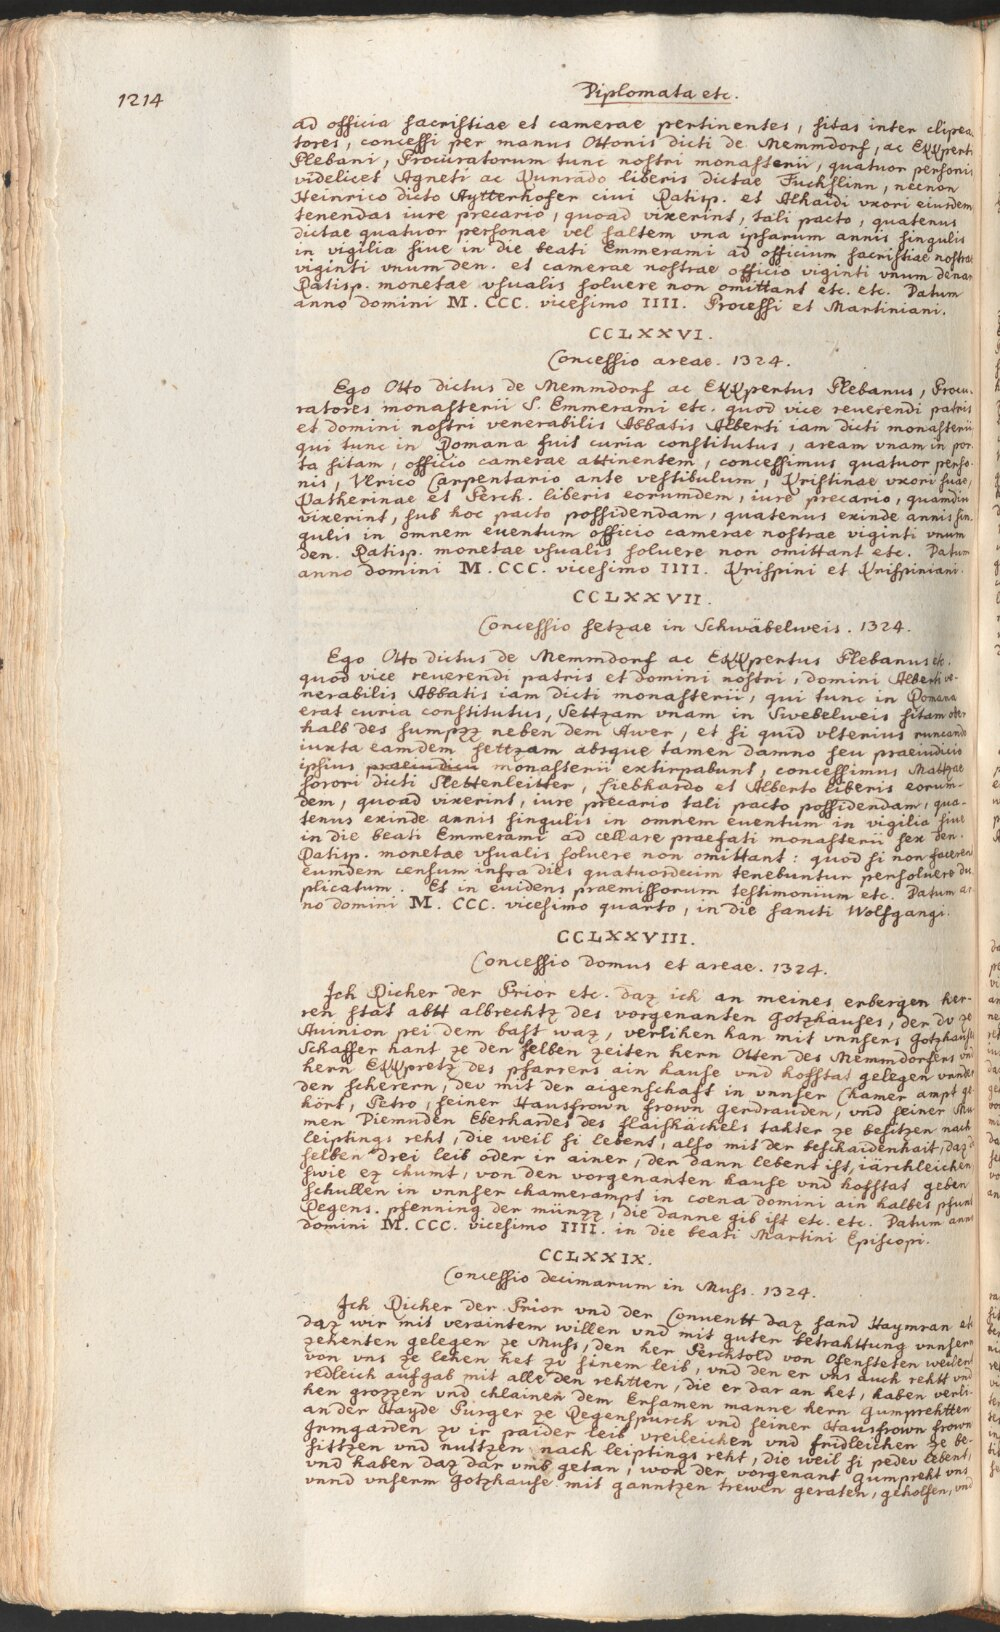 1214
Diplomata etc.
ad officia sacristiae et camerae pertinentes, sitas inter clipea-
tores, concessi per manus Ottonis dicti de Memmdorf, ac Ekkperti
Plebani, Procuratorum tunc nostri monasterii, quatuor personis
videlicet Agneti ac Kunrado liberis dictae Fuchslinn, necnon
Heinrico dicto Aytterhofer civi Ratisp. et Alhaidi uxori eiusdem
tenendas iure precario, quoad vixerint, tali pacto, quatenus
dictae quatuor personae vel saltem vna ipsarum annis singulis
in vigilia siue in die beati Emmerami ad officium sacristiae nostrae
viginti vnum den. et camerae nostrae officio viginti vnum denar.
Ratisp. monetae vsualis soluere non omittant etc. etc. Datum
anno domini M. CCC. vicesimo IIII. Processi et Martiniani.
CCLXXVI.
Concessio areae. 1324.
Ego Otto dictus de Memmdorf ac Ekkpertus Plebanus, Procu-
ratores monasterii S. Emmerami etc. quod vice reuerendi patris
et domini nostri venerabilis Abbatis Alberti iam dicti monasterii
qui tunc in Romana fuit curia constitutus, aream vnam in por-
ta sitam, officio camerae attinentem, concessimus quatuor perso-
nis, Vlrico Carpentario ante vestibulum, Kristinae vxori suae,
Katherinae et Perch. liberis eorumdem, iure precario, quamdiu
vixerint, sub hoc pacto possidendam, quatenus exinde annis sin-
gulis in omnem euentum officio camerae nostrae viginti vnum
den. Ratisp. monetae vsualis soluere non omittant etc. Datum
anno domini M. CCC. vicesimo IIII. Krispini et Krispiniani.
CCLXXVII.
Concessio setzae in Schwäbelweis. 1324.
Ego Otto dictus de Memmdorf ac Ekkpertus Plebanus etc.
quod vice reuerendi patris et domini nostri, domini Alberti ve-
nerabilis Abbatis iam dicti monasterii, qui tunc in Romana
erat curia constitutus, Settzam vnam in Swebelweis sitam ober
halb des sumpzz neben dem Awer, et si quid vlterius runcando
iuxta eamdem settzam absque tamen damno seu praeiudicio
ipsius praeiudicii monasterii extirpabunt, concessimus Mattzae
sorori dicti Stettenleitter, Liebhardo et Alberto liberis eorum-
dem, quoad vixerint, iure precario tali pacto possidendam, qua-
tenus exinde annis singulis in omnem euentum in vigilia siue
in die beati Emmerami ad cellare praefati monasterii sex den.
Ratisp. monetae vsualis soluere non omittant: quod si non facerent
eumdem censum infra dies quatuordecim tenebuntur persoluere du-
plicatum. Et in euidens praemissorum testimonium etc. Datum an-
no domini M. CCC. vicesimo quarto, in die sancti Wolfgangi.
CCLXXVIII.
Concessio domus et areae. 1324.
Ich Richer der Prior etc. daz ich an meines erbergen her-
ren stat abtt albrechtz des vorgenanten Gotzhauses, der dv ze
Auinion pei dem bast waz, verlihen han mit vnnsers Gotzhauses
Schaffer hant ze den selben zeiten hern Otten des Memmdorfers vnd
hern Ekkpretz des pharrers ain hause vnd hofstat gelegen vnnder
den scherern, dev mit der aigenschaft in vnnser Chamer ampt ge-
hört, Petro, seiner Hausfrown frown Gerdrauden, vnd seiner Mu-
men Diemnden Eberhardes des flaishäckels tohter ze besitzen nach
leiptings reht, die weil si lebent, also mit der beschaidenhait, daz di
selben drei leib oder ir ainer, der dann lebent ist, iärchleichen
swie ez chumt, von den vorgenanten hause vnd hofstat geben
schullen in vnnser chamerampt in coena domini ain halbes pfunt
Regens. pfenning der münzz, die danne gib ist etc. etc. Datum anno
domini M. CCC. vicesimo IIII. in die beati Martini Episcopi.
CCLXXIX.
Concessio decimarum in Muss. 1324.
Ich Richer der Prior vnd der Conuentt daz sand Haymran etc
daz wir mit veraintem willen vnd mit guter betrahttung vnnsern
zehenten gelegen ze Muss, den her Perchtold von Ofensteten weilent
von vns ze lehen het zu sinem leib, vnd den er vns auch rehtt vnd
redleich aufgab mit alle den rehtten, die er dar an het, haben verli-
hen grozzen vnd chlainen dem Ersamen manne hern Gumprehtten
an der Hayde Purger ze Regenspurch vnd seiner Hausfrown frown
Irmgarden zu ir paider leib vreileichen vnd fridleichen ze be-
sittzen vnd nuttzen nach leiptings reht, die weil si pedev lebent,
vnd haben daz dar vmb getan, won der vorgenant Gumpreht vns
vnnd vnserm Gotzhause mit ganntzen trewen geraten, geholfen, vnd